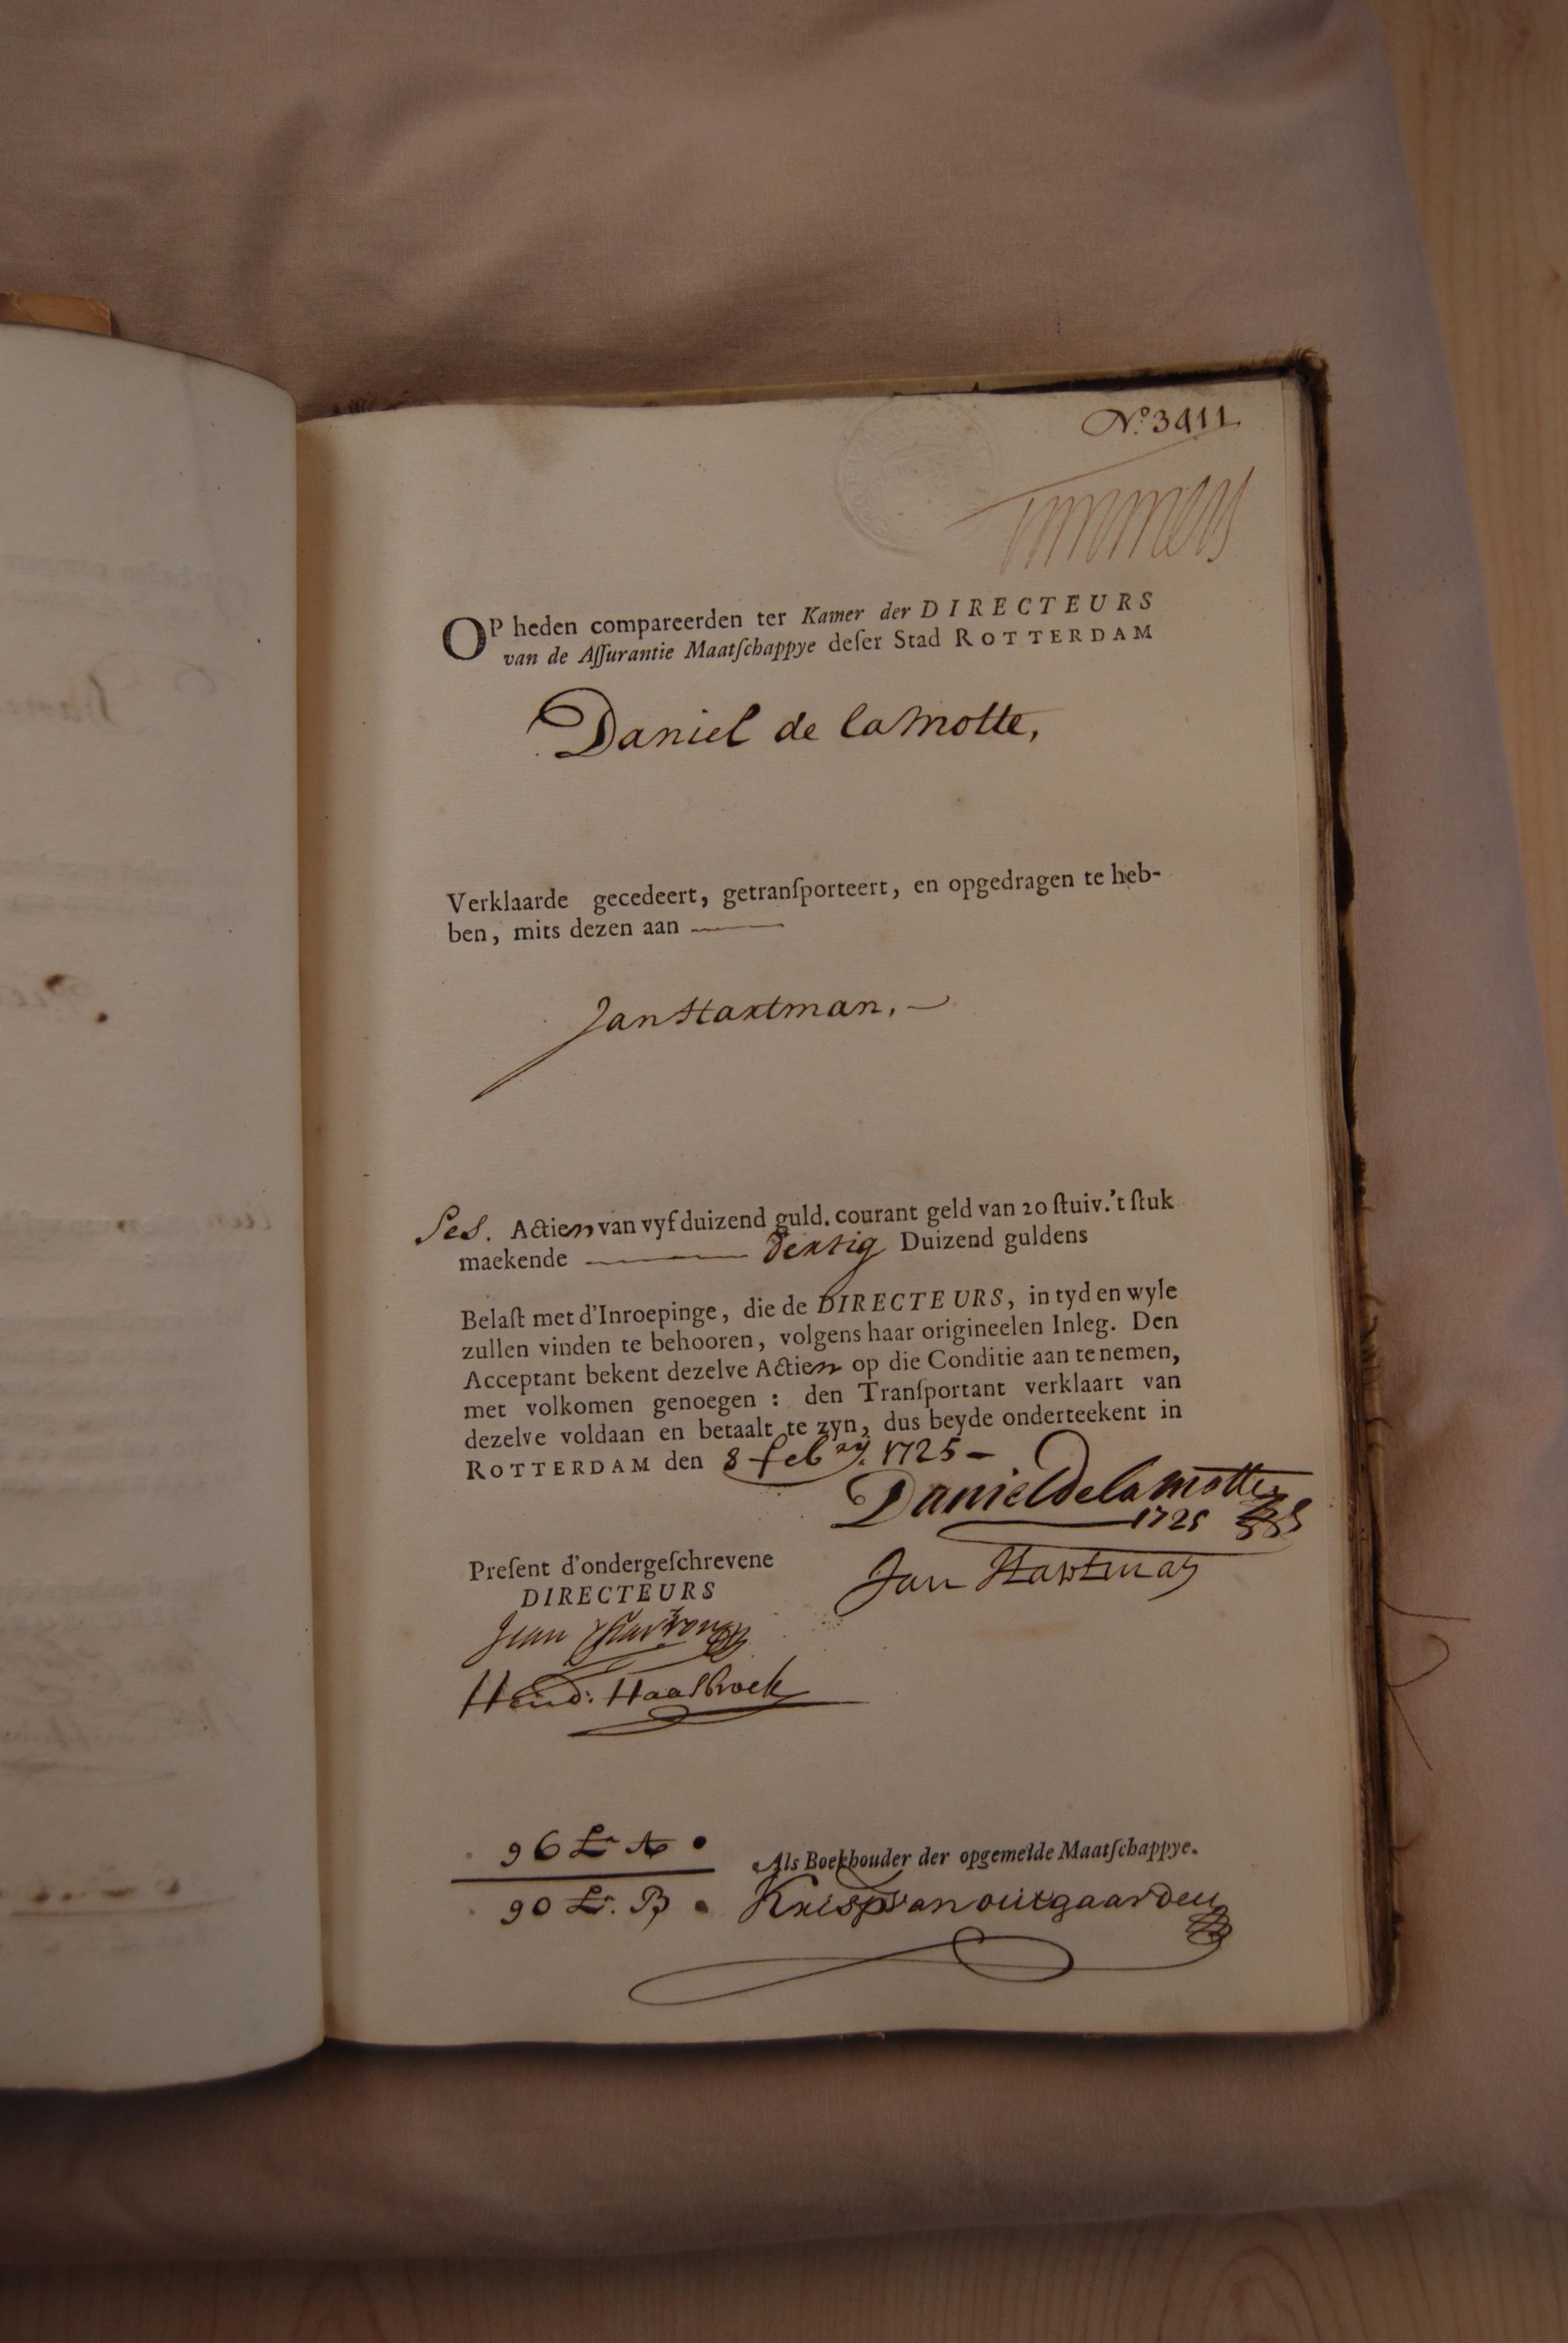 No. 3411
Timmers
OP heden compareerden ter Kamer der DIRECTEURS
van de Aſſurantie Maatſchappye deſer Stad ROTTERDAM
Daniel de la Motte,
Verklaarde gecedeert, getranſporteert, en opgedragen te heb-
ben, mits dezen aan
Jan Hartman.
Ses. Actien van vyf duizend guld. courant geld van 20 ſtuiv. 't ſtuk
maekende dertig Duizend guldens
Belaſt met d'Inroepinge, die de DIRECTEURS, in tyd en wyle
zullen vinden te behooren, volgens haar origineelen Inleg. Den
Acceptant bekent dezelve Actien op die Conditie aan te nemen,
met volkomen genoegen : den Tranſportant verklaart van
dezelve voldaan en betaalt te zyn, dus beyde onderteekent in
ROTTERDAM den 8 febry. 1725
Daniel de la Motte
1725
Preſent d'ondergeſchrevene
DIRECTEURS
Jan Hartman
Jean
Hend: Haasbroek
96 Lr A
Als Boekhouder der opgemelde Maatſchappye.
90 Lr. B
Krisp van outgaarden